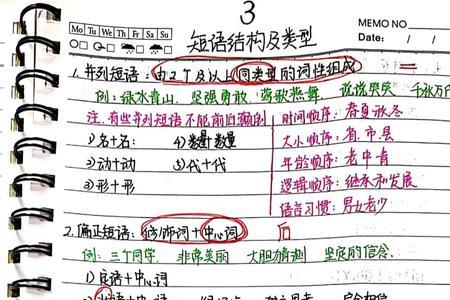 3
MEMO NO
Mo Tu We Th Fr Sa Su
Date: / /
短语结构及类型
1.并列短语:由2个及以上同类型的词性组成
例:绿水青山、坚强勇敢、莺歌燕舞 说说笑笑 千张万
注:有些并列短语不能前后颠倒
时间顺序:春夏秋冬
1)名+名: 4)数量+数量
大小顺序:省.市.县
2)动+动 5)代+代
年龄顺序:老中青
3)形+形
逻辑顺序:继承和发展
语言习惯:男女老少
2.偏正短语:修饰词+中心词 后
例:三个同学 非常美丽 大胆猜测 坚定的信念、
1)定语+中心词